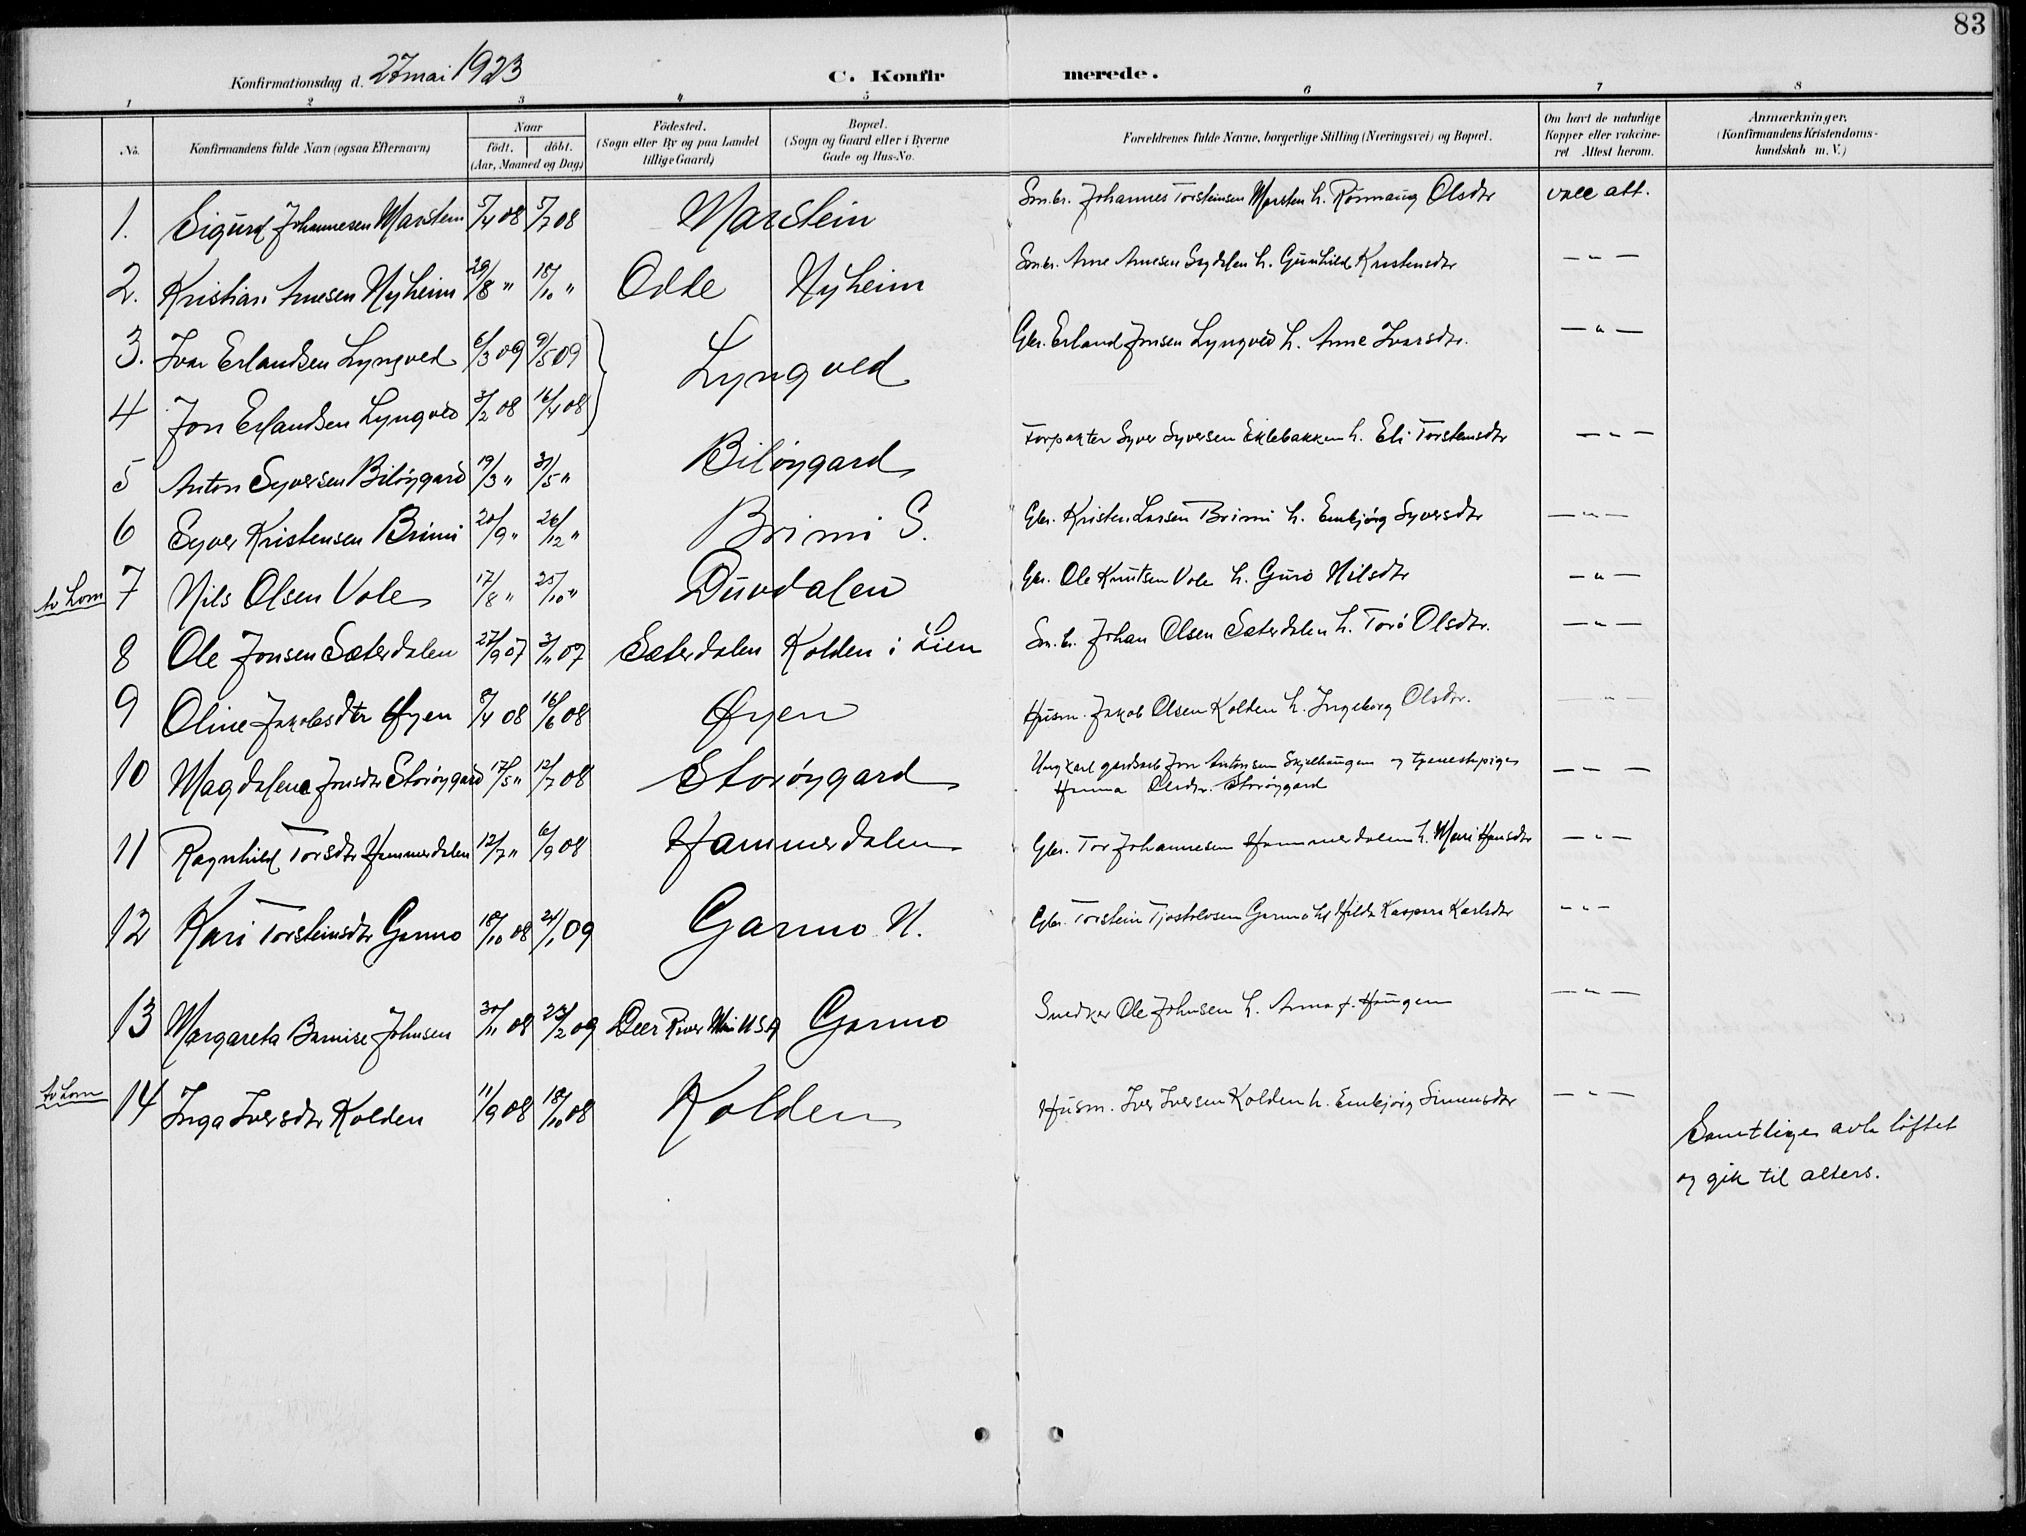 83
Konfirmationsdag d. 27 mai 1923 C. Konfirmerede.
1 2 3 4 5 6 7 8
No. Konfirmandens fulde Navn (ogsaa Efternavn) Naar födt. döbt. (Aar, Maaned og Dag) Födested. (Sogn eller By og paa Landet tillige Gaard) Bopæl. (Sogn og Gaard eller i Byerne Gade og Hus-No. Forældrenes fulde Navne, borgerlige Stilling (Næringsvei) og Bopæl. Om havt de naturlige Kopper eller vakcineret Attest herom. Anmærkninger. (Konfirmandens Kristendomskundskab m. V.)
1. Sigurd Johannesen Marstein 5/4 08 5/7 08 Marstein Sm.br. Johannes Torsteinsen Marstein h. Rönnaug Olsdtr vacc att.
2. Kristian Arnesen Nyheim 29/8 " 18/10 " Odde Nyheim Sm.br. Arne Arnesen h. Gunhild Kristensdtr — " —
3. Ivar Erlandsen Lyngved 6/3 09 9/5 09 } Lyngved Gbr. Erland Jonsen Lyngved h. Anne Ivarsdtr. — " —
4 Jon Erlandsen Lyngved 3/2 08 16/4 08
5 Anton Syversen Bilöygard 19/3 " 31/5 " Bilöygard Forpakter Syver Syversen Eklebakken h. Eli Torsteinsdtr — " —
6 Syver Kristensen Brimi 20/9 " 26/12 " Brimi S. Gbr. Kristen Larsen Brimi h. Embjörg Syversdtr — " —
Av Lom 7 Nils Olsen Vole 17/8 " 25/10 " Duvdalen Gbr. Ole Knutsen Vole h. Guro Nilsdtr — " —
8 Ole Jonsen Sæterdalen 27/9 07 3/11 07 Sæterdalen Kolden i Lien Sm.br. Johan Olsen Sæterdalen h. Toro Olsdtr. — " —
9 Oline Jakobsdtr Øyen 8/4 08 16/6 08 Øyen Husm. Jakob Olsen Kolden h. Ingeborg Olsdtr. — " —
10 Magdalena Jonsdtr Storöygard 17/5 " 12/7 08 Storöygard Ungkarl gardsarb Jon Antonsen Skjelhaugen og tjenestepige
Olsdtr. Storöygard — " —
11 Ragnhild Torsdtr Hammerdalen 12/7 " 6/9 08 Hammerdalen Gbr. Tor Johannesen Hammerdalen h. Mari Hansdtr — " —
12 Kari Torsteinsdtr Garmo 18/10 08 24/1 09 Garmo N. Gbr. Torstein Tjostolvsen Garmo h. Hilda Kaspara Karlsdtr — " —
13 Margareta Johnsen 30/11 08 23/2 09 Deer River Min USA Garmo Snedker Ole Johnsen h. Anna f. Haugen — " —
Av Lom 14 Inga Iversdtr Kolden 11/9 08 18/10 08 Kolden Husm. Iver Iversen Kolden h. Embjörg Simensdtr — " —
Samtlige avla löftet
og gik til alters.